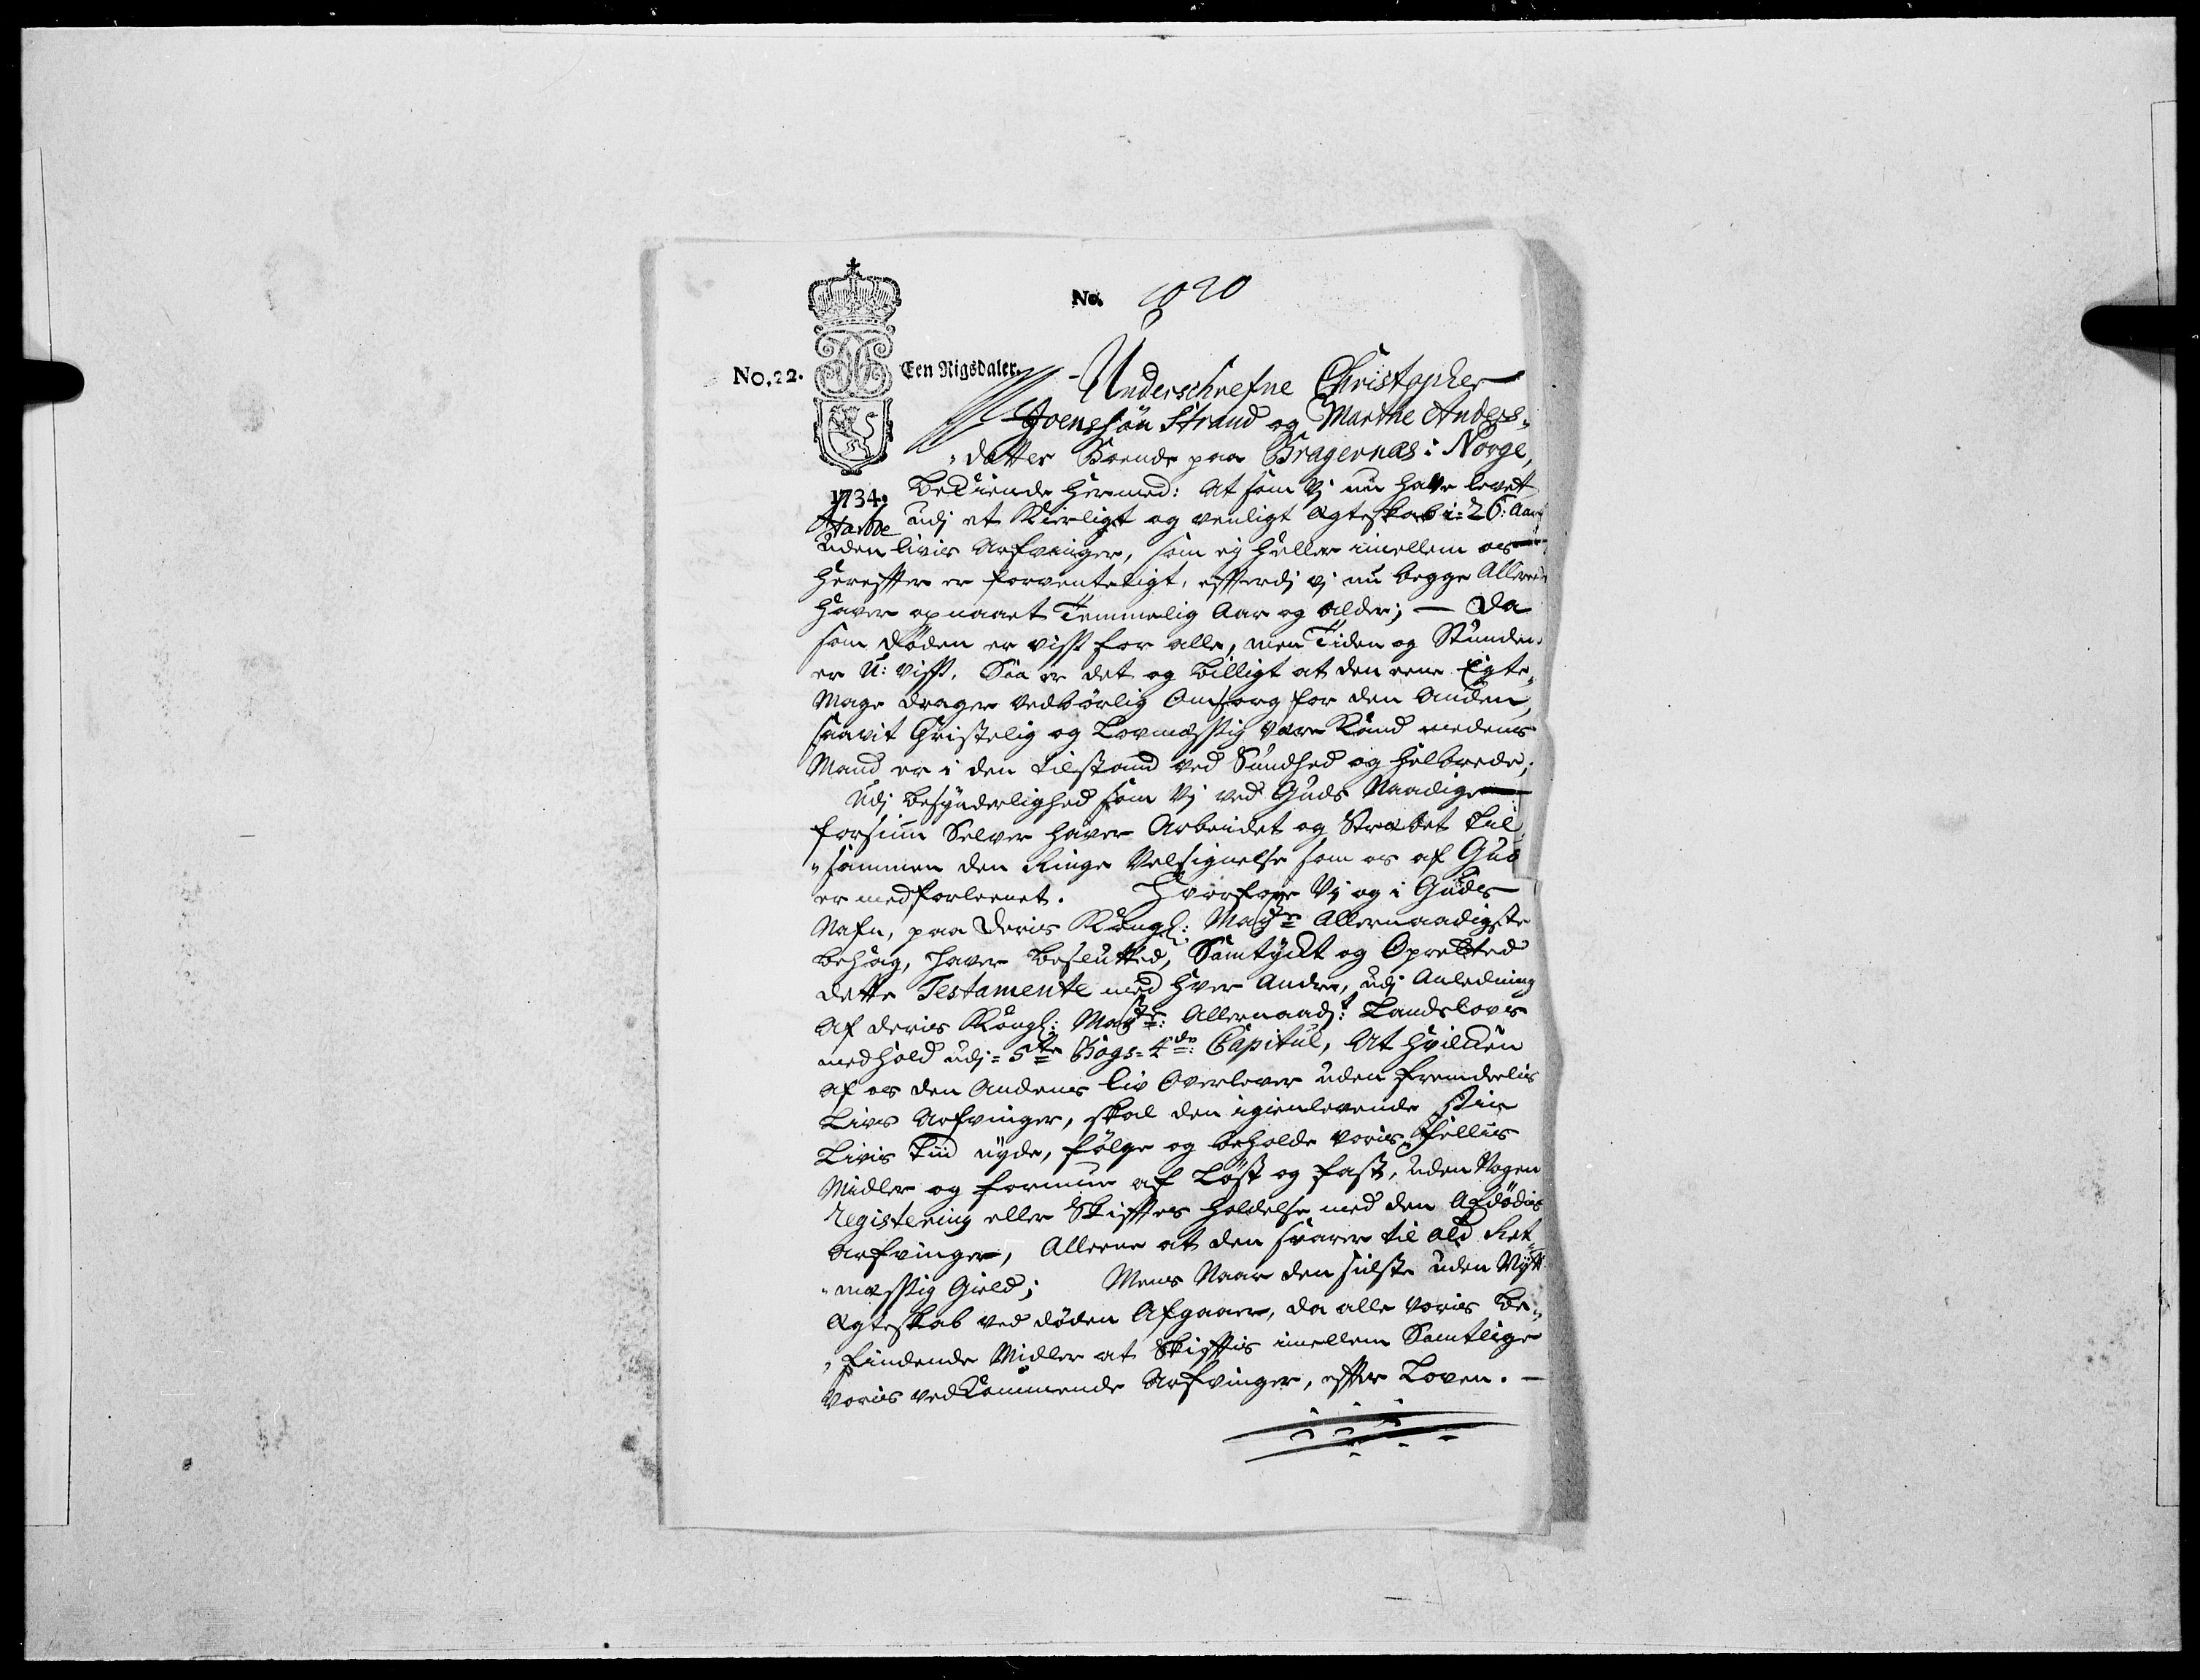 No. 1020
No. 22. Een Rigsdaler.
Underschrefne Christopher
Joenssön Strand og Marthe Anders¬
„datter Boende paa Bragernæs i Norge,
1734. bekiende hermed: At som Vj nu have levet
udj et Kierligt og venligt Ægteskab i = 26: Aar
uden livis Arfvinger, som ej heller imellem os
herefter er forventeligt, efterdj vj nu begge Allerede
haver opnaaet Temmelig Aar og Alder; — Da
som Døden er visst for alle, men Tiden og Stunden
er U: visst, Saa er det og billigt at den eene Egte„
Mage drager vedbörlig Omsorg for den Anden,
saavit Christelig og Lovmæssig være Kand medens
Mand er i den tilstand ved Sundhed og helbrede;
Udj besynderlighed som Vj ved Guds Naadige
forsiun Selver haver Arbeidet og Stræbet til
„sammen den Ringe Velsignelse som os af Gud
er medforleenet. Hvorfore Vj og i Guds
Nafn, paa Deris Kongl: Mayts Allernaadigste
behag, haver beslutted, Samtyckt og Opretted
dette Testamente med hver Andre, udj Anledning
Af deris Kongl: Mayts: Allernaadj:t Landslovs
medhold udj = 5te Bogs = 4de: Capitul, At hvilcken
af os den Andens liv Overlever uden fremdeelis
Livs Arfvinger, skal den igienlevende sin
Livis tiid nyde, følge og beholde voris fellis
Midler og formue af Löst og fast, uden Nogen
registering eller Skiftes holdelse med den Afdödis
Arfvinger, Alleene at den svarer til ald Ret¬
„mæssig Gield; Mens Naar den sidste uden Nytt
Ægteskab ved døden Afgaaer, da alle voris be„
„findende Midler at Skiftis imellem Samtlige
voris vedkommende Arfvinger, efter Loven. —